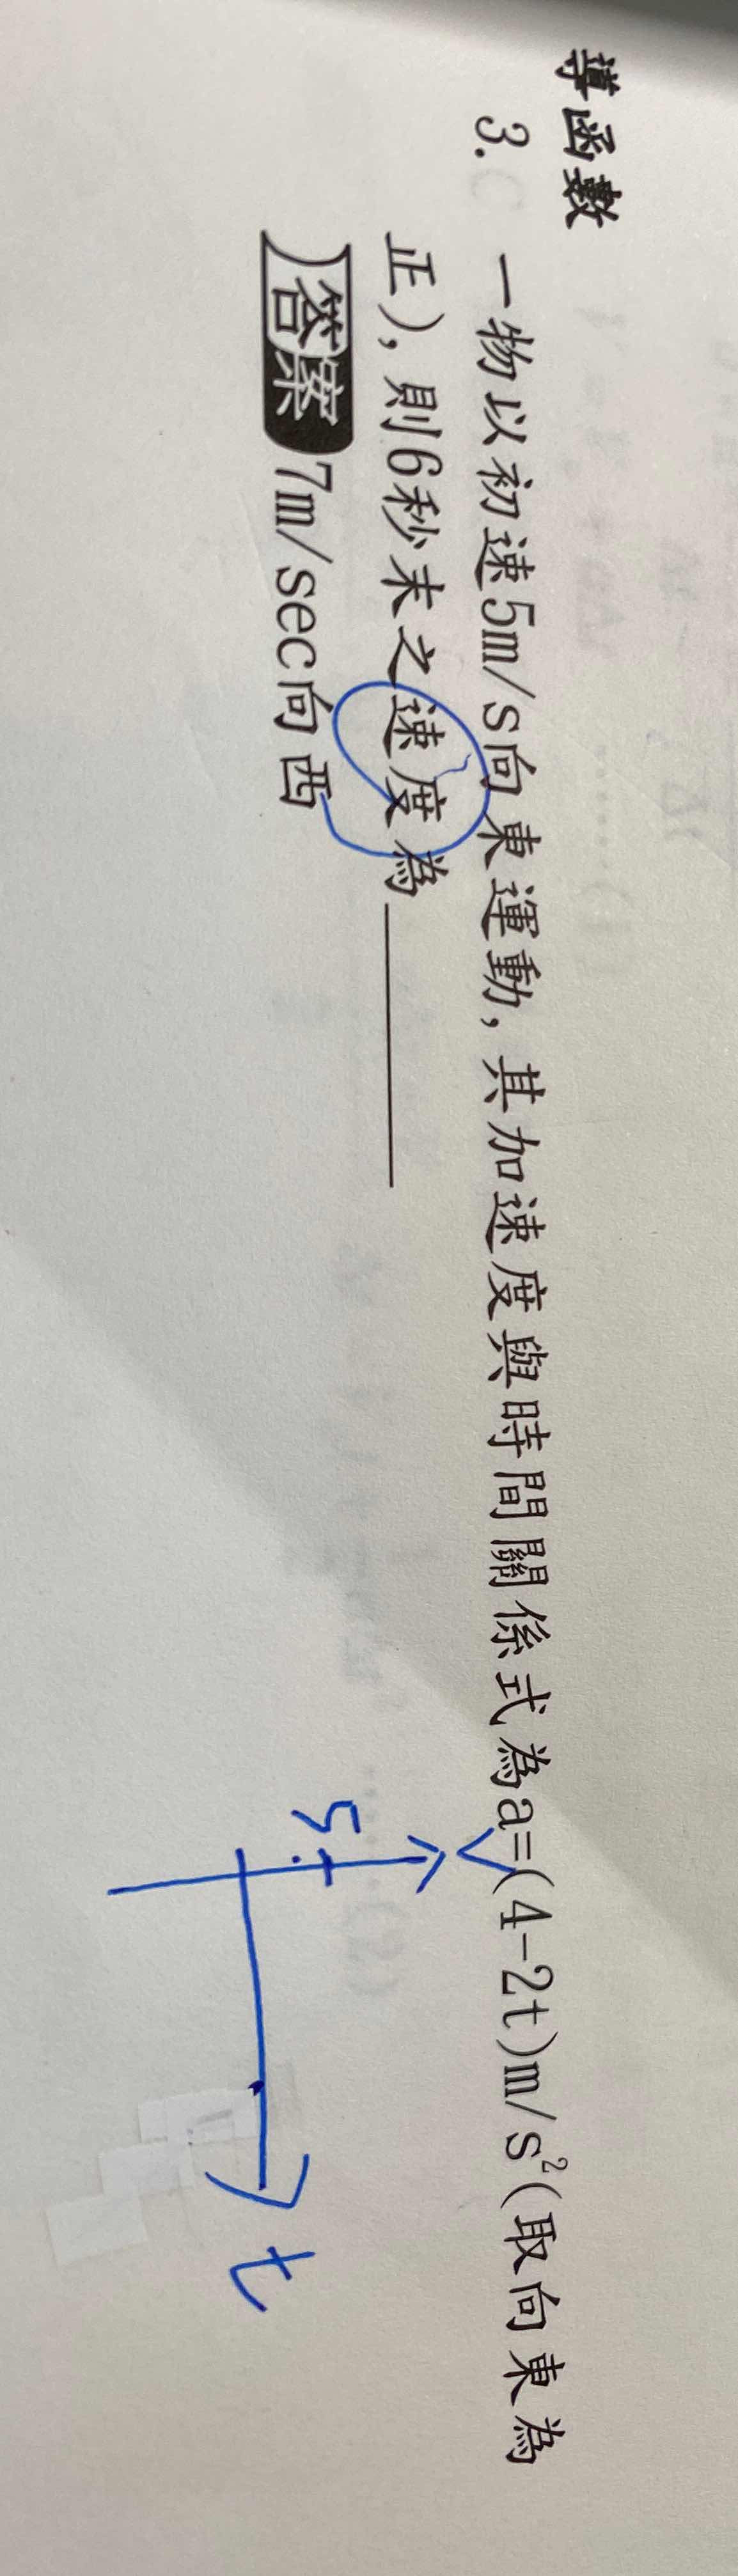 導函數
3. 一物以初速5m/s向東運動, 其加速度與時間關係式為a=(4-2t)m/s²(取向東為
正), 則6秒末之速度為______
答案 7m/sec向西
V
5
t